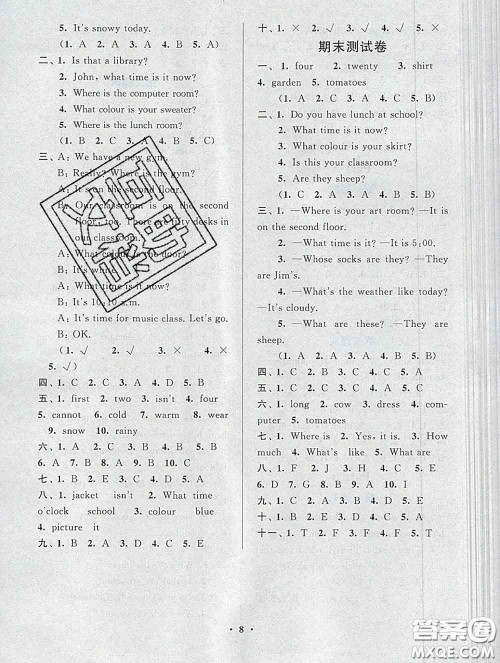 5. It's snowy today.
(1. A  2. A  3. A  4. B  5. A)
二、1. Is that a library?
2. John, what time is it now?
3. Where is the computer room?
4. What colour is your sweater?
5. Where is the lunch room?
(1. B  2. C  3. A  4. C  5. C)
三、A: We have a new gym.
B: Really? Where is the gym?
A: It's on the second floor.
B: Our classroom is on the second
floor, too. There are fifty desks in
our classroom.
A: What colour is the door?
B: It's white.
A: What time is it now?
B: It's 10:10 a.m.
A: It's time for music class. Let's go.
B: OK.
(1. √  2. √  3. ×  4. ×
5. √)
四、1. C  2. C  3. A  4. D  5. B
五、1. first  2. two  3. isn't  4. four
5. cannot  6. cold  7. warm  8. wear
9. snow  10. rainy
六、1. A  2. C  3. B  4. B  5. B
6. A  7. A  8. B  9. B  10. C
七、1. D  2. E  3. C  4. A  5. B
八、1. jacket  isn't  2. What time
o'clock  school  3. colour  blue
4. picture  it
九、1. B  2. A  3. D  4. C  5. E
十、1. ×  2. √  3. √  4. ×  5. √
期末测试卷
一、1. four  2. twenty  3. shirt
4. garden  5. tomatoes
(1. B  2. C  3. A  4. A  5. A)
二、1. Do you have lunch at school?
2. What time is it now?
3. What colour is your skirt?
4. Is this your classroom?
5. Are they sheep?
(1. A  2. A  3. A  4. B  5. A)
三、1. —Where is your art room? —It is
on the second floor.
2. —What time is it? —It is 5:00.
3. —Whose socks are they? —They
are Jim's.
4. —What's the weather like today?
—It's cloudy.
5. —What are these? —They are
sheep.
(1. A  2. C  3. B  4. C  5. A)
四、1. C  2. B  3. C  4. A  5. B
五、1. C  2. C  3. B  4. A  5. C
六、1. long  2. cow  3. dress  4. com-
puter  5. tomatoes
七、1. Where is  2. Yes, it is.  3. How
much  4. What's like  5. What are
八、1. F  2. J  3. H  4. I  5. E
6. D  7. G  8. B  9. A  10. C
九、1. C  2. B  3. A  4. C  5. A
十、1. B  2. A  3. C  4. D  5. E
十一、1. T  2. F  3. F  4. T  5. F
• 8 •
答案圈
MXQE.COM